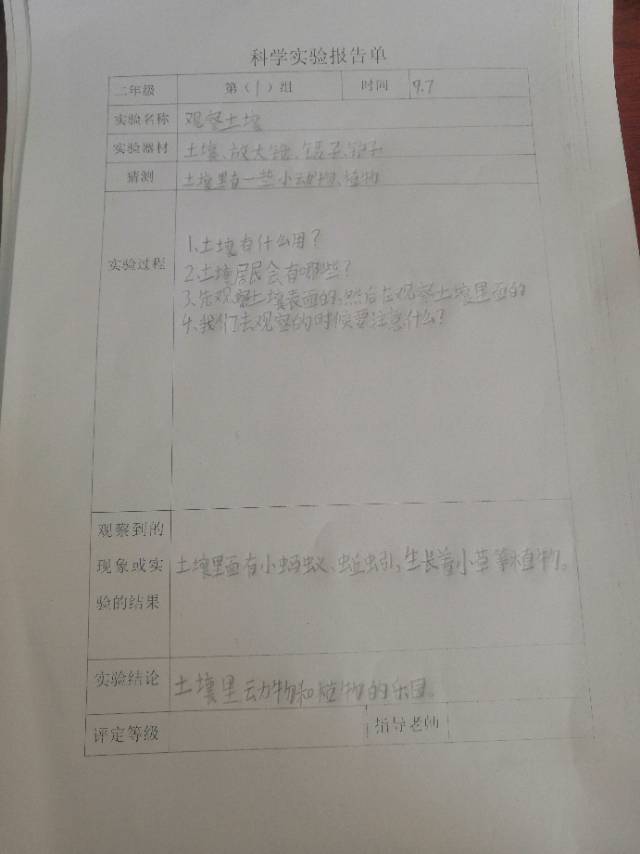 科学实验报告单
二年级 第（1）组 时间 9.7
实验名称 观察土壤
实验器材 土壤、放大镜、镊子、铲子
猜测 土壤里有一些小动物、植物
1.土壤有什么用？
2.土壤居民会有哪些？
实验过程 3.先观察土壤表面的,然后在观察土壤里面的
4.我们去观察的时候要注意什么？
观察到的
现象或实 土壤里面有小蚂蚁、蚯蚓,生长着小草等植物。
验的结果
实验结论 土壤里动物和植物的乐园。
评定等级 指导老师